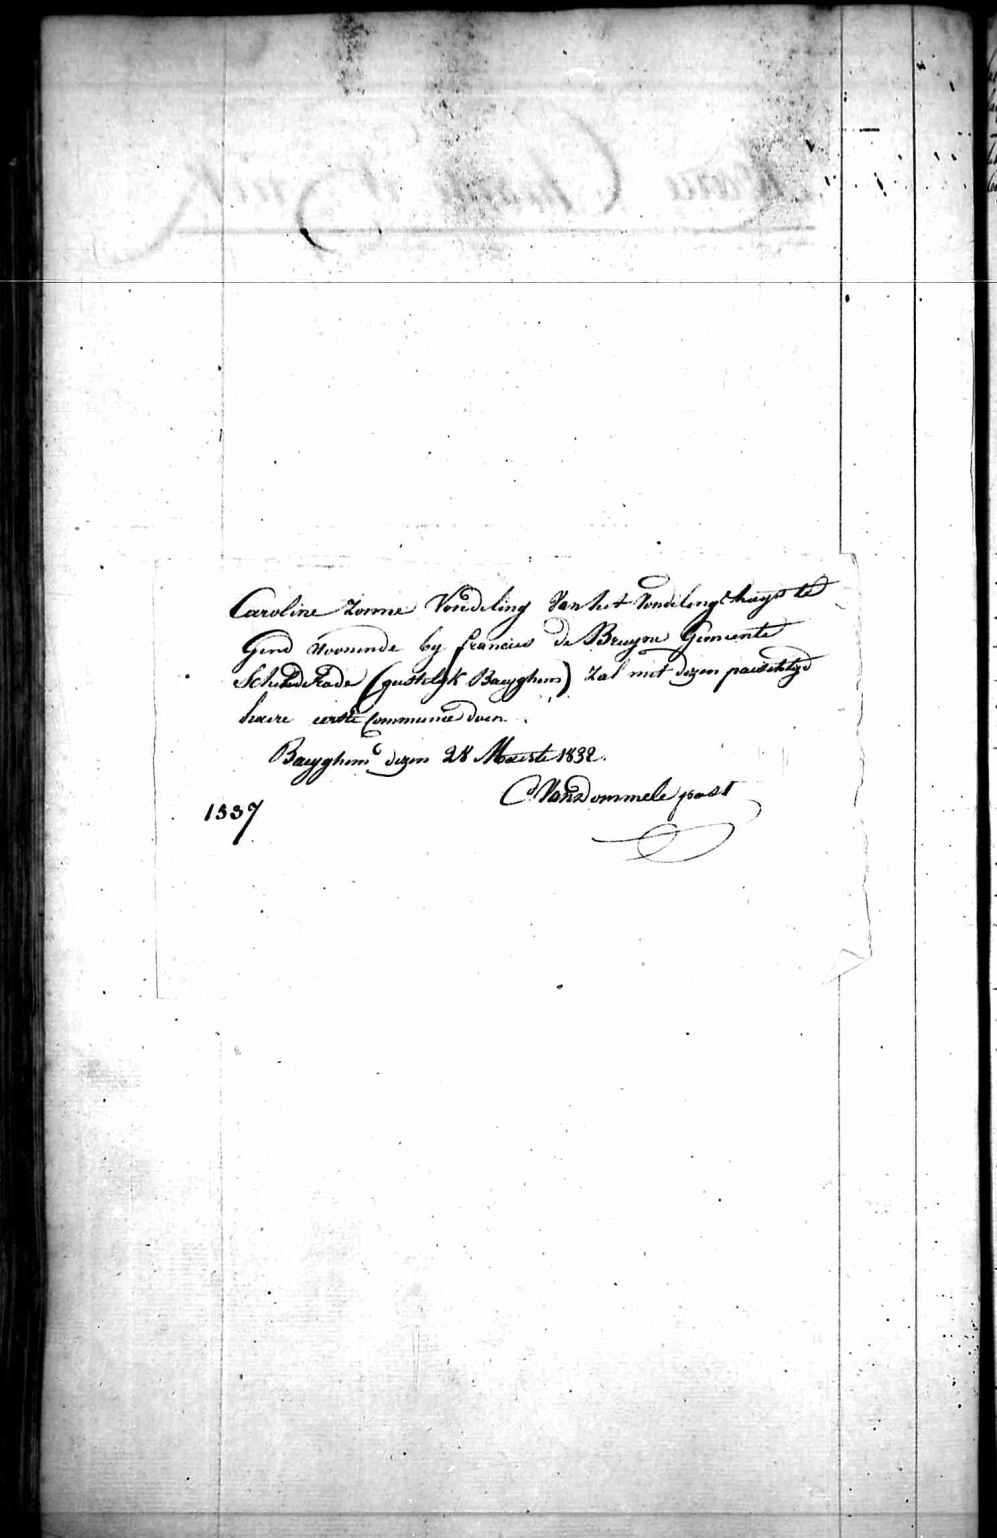 Caroline Zonne Vondeling Van het Vondelingshuys te
Gend Woonende by francies de Bruyne Gemeente
Schelderade (gestelyk Bayghem) Zal met dezen paeschtyd
haere eerste Communie doen.
Bayghem dezen 28 Maerte 1832.
C VanDommele past
1337